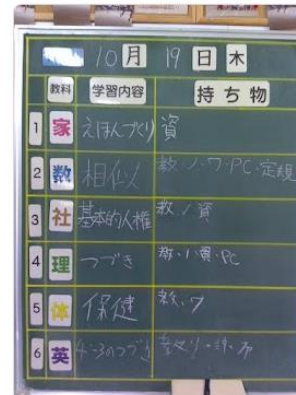 10 月 19 日 木
教科 学習内容 持ち物
1 家 えほんづくり 資
2 数 相似 教・ノ・ワ・PC・定規
3 社 基本的人権 教・ノ・資
4 理 つづき 教・ノ・資・PC
5 体 保健 教・ワ
6 英 4-3のつづき